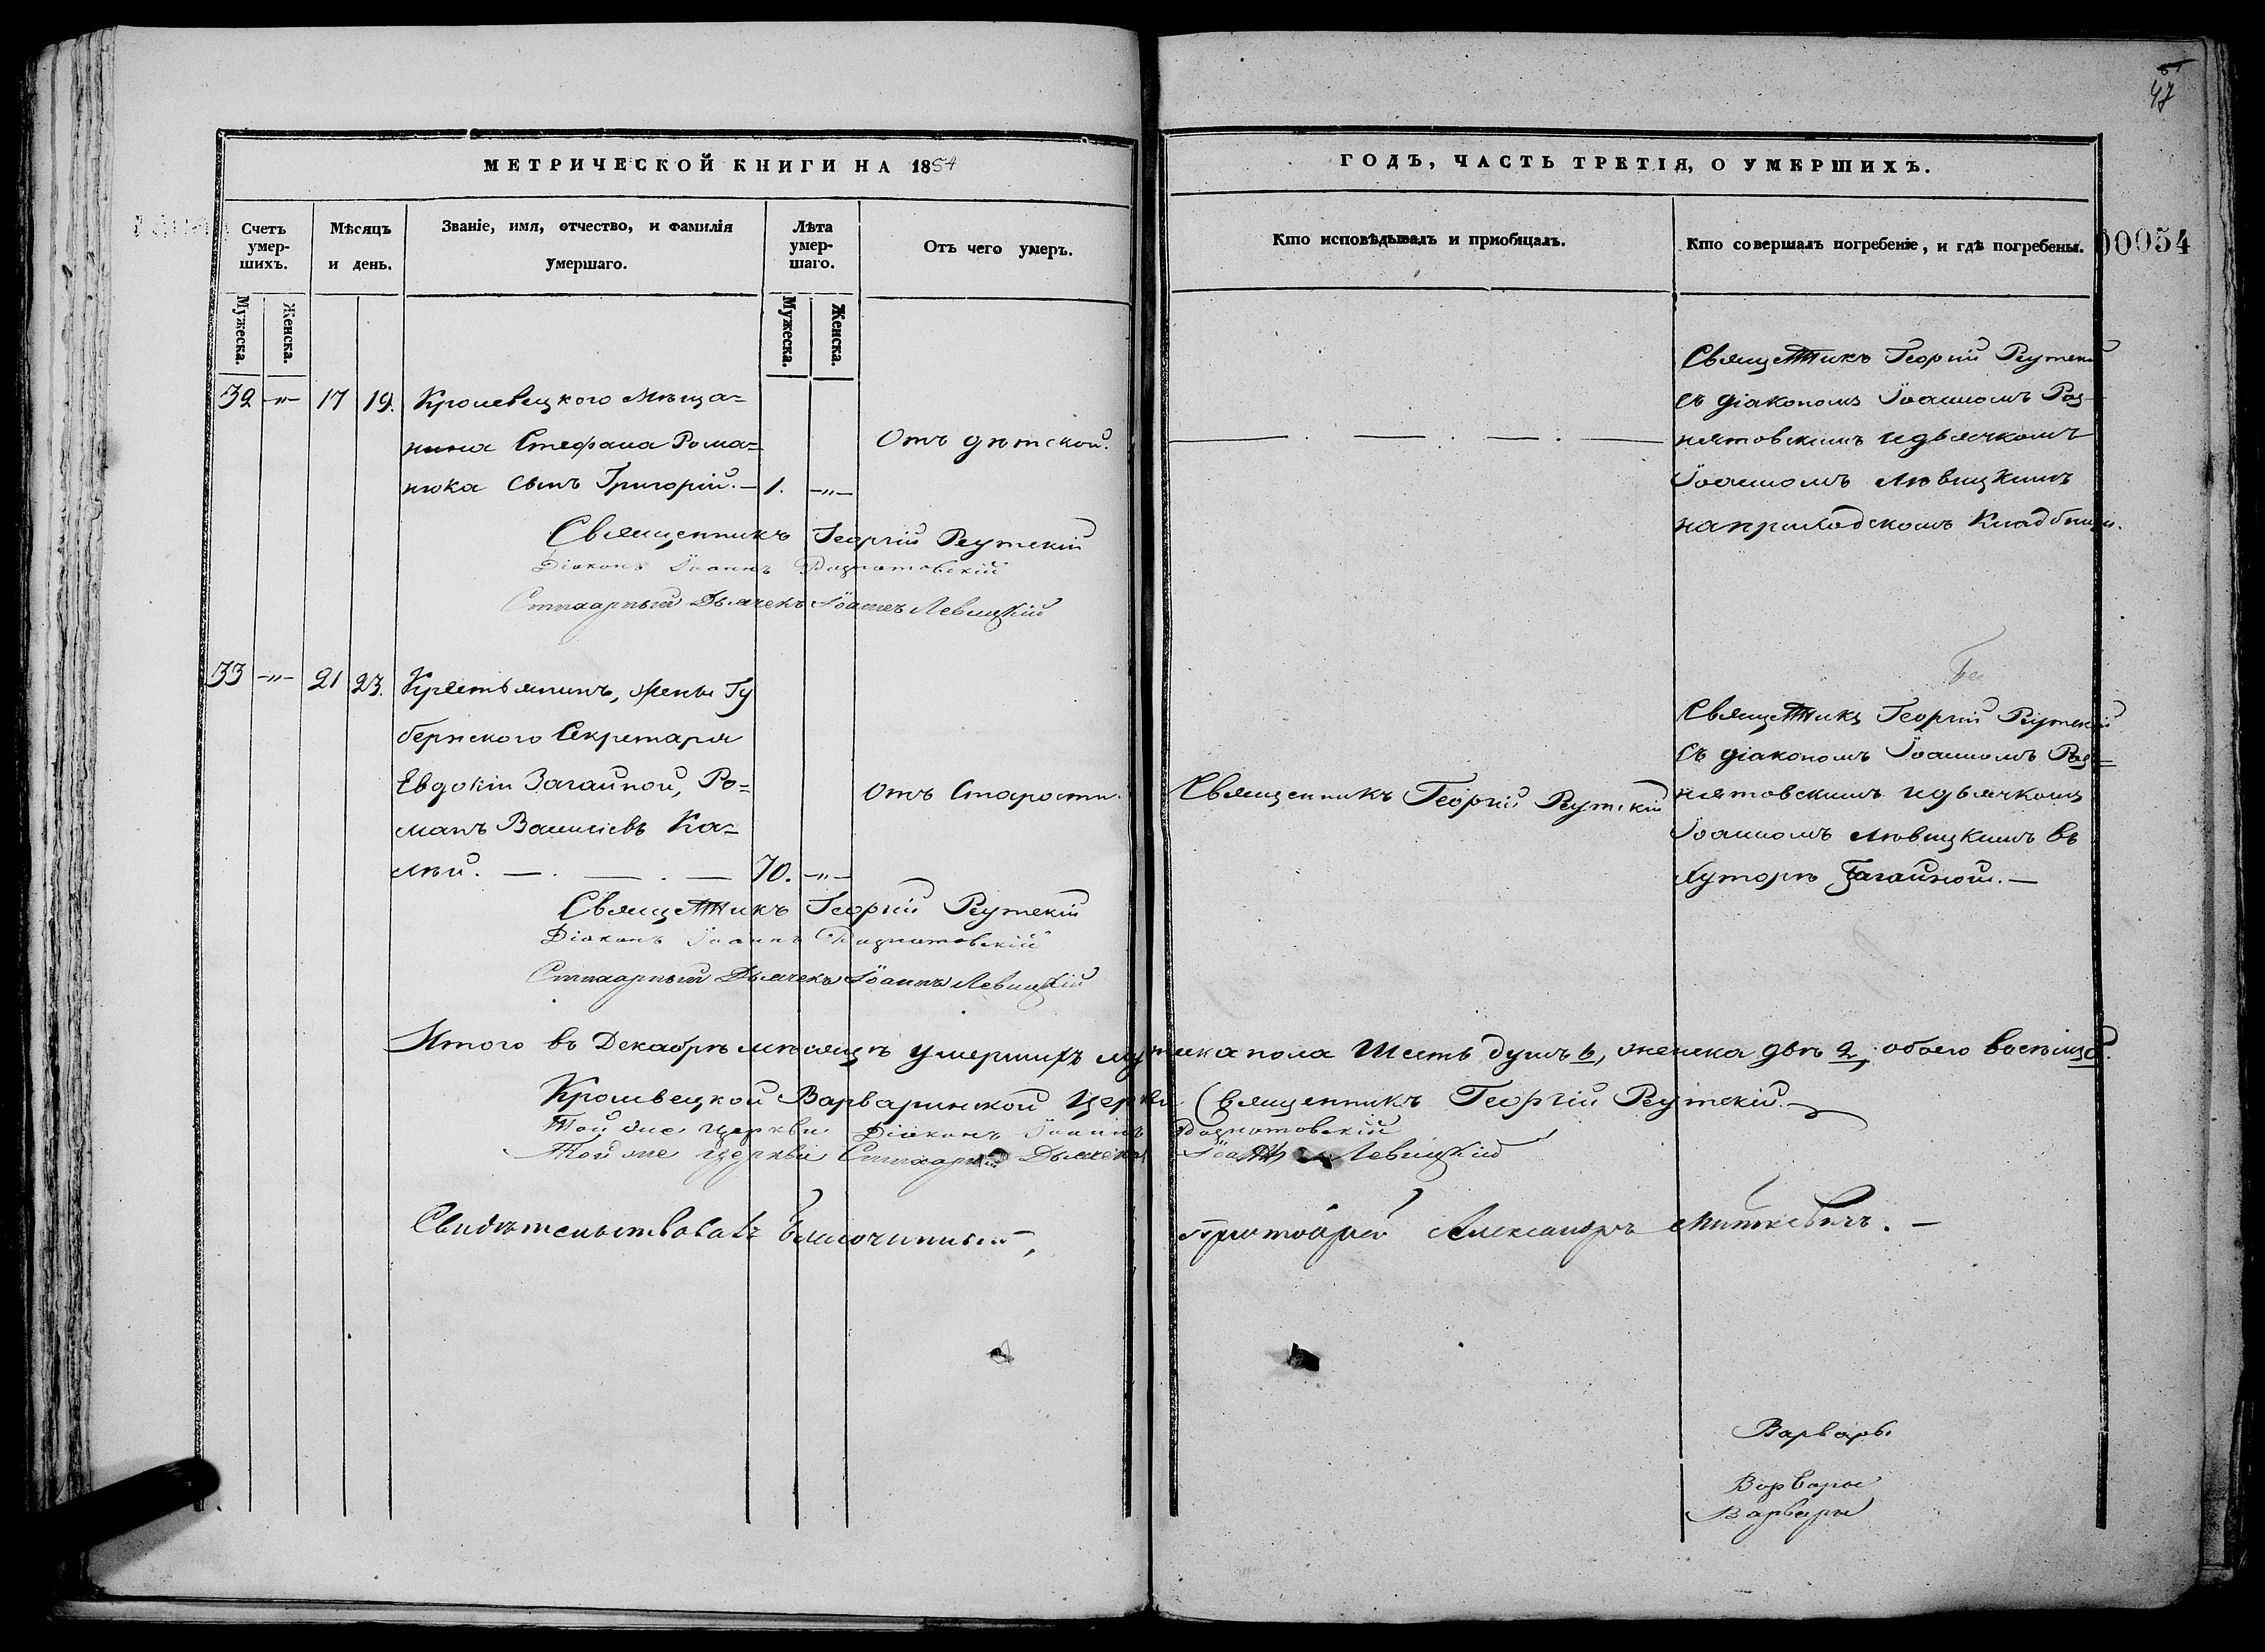 47
МЕТРИЧЕСКОЙ КНИГИ НА 1854
ГОДЪ, ЧАСТЬ ТРЕТІЯ, О УМЕРШИХЪ.
Счетъ умер-
шихъ.
Мѣсяцъ
и день.
Званіе, имя, отчество, и фамилія
умершаго.
Лѣта
умер-
шаго.
Отъ чего умеръ.
Кто исповѣдывалъ и приобщалъ.
Кто совершалъ погребеніе, и гдѣ погребены.
00054
Мужеска.
Женска.
Мужеска.
Женска.
32 -„- 17 19.
Кролевецкого Мѣща-
нина Стефана Рома-
нюка сынъ Григорій. — 1. -„-
Отъ дѣтской.
Священникъ Георгій Реутскій
съ діакономъ Іоанномъ Раз-
нятовскимъ и дьячкомъ
Іоанномъ Лѣвицкимъ
на приходскомъ кладбищи.
Священникъ Георгій Реутскій
Діаконъ Іоаннъ
Стихарный Дьячекъ Іоаннъ Левицкій
33 -„- 21 23.
Крестьянинъ, жены Гу
бернского Секретаря
Евдокіи Загайной, Ро-
манъ Василіевъ Ка-
лѣй. — . — . — 70. -„-
Отъ Старости.
Священникъ Георгій Реутскій
Священникъ Георгій Реутскій
съ діакономъ Іоанномъ Раз-
нятовскимъ и дьячкомъ
Іоанномъ Лѣвицкимъ въ
хуторѣ Загайной. —
Священникъ Георгій Реутскій
Діаконъ Іоаннъ
Стихарный Дьячекъ Іоаннъ Левицкій
Итого въ Декабрѣ мѣсяцѣ умершихъ мужеска пола Шесть душъ 6, женска двѣ 2, обоего восемь 8.
Кролевецкой Варваринской Церкви Священникъ Георгій Реутскій. —
Той же церкви Діаконъ Іоаннъ
Той же церкви Стихарный Дьячекъ Іоаннъ Левицкій
Свидѣтельствовалъ Благочинный, Протоіерей Александръ Миткевичъ. —
Варвары
Варвары
Варвары